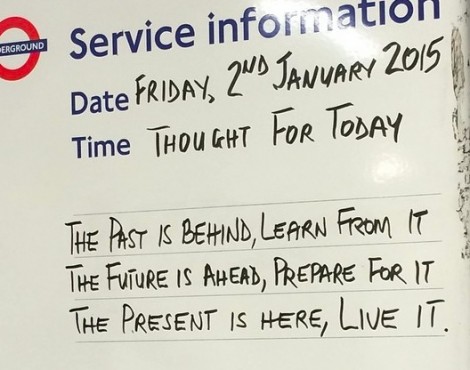 DERGROUND
Service information
Date FRIDAY, 2ND JANUARY 2015
Time THOUGHT FOR TODAY
THE PAST IS BEHIND, LEARN FROM IT
THE FUTURE IS AHEAD, PREPARE FOR IT
THE PRESENT IS HERE, LIVE IT.